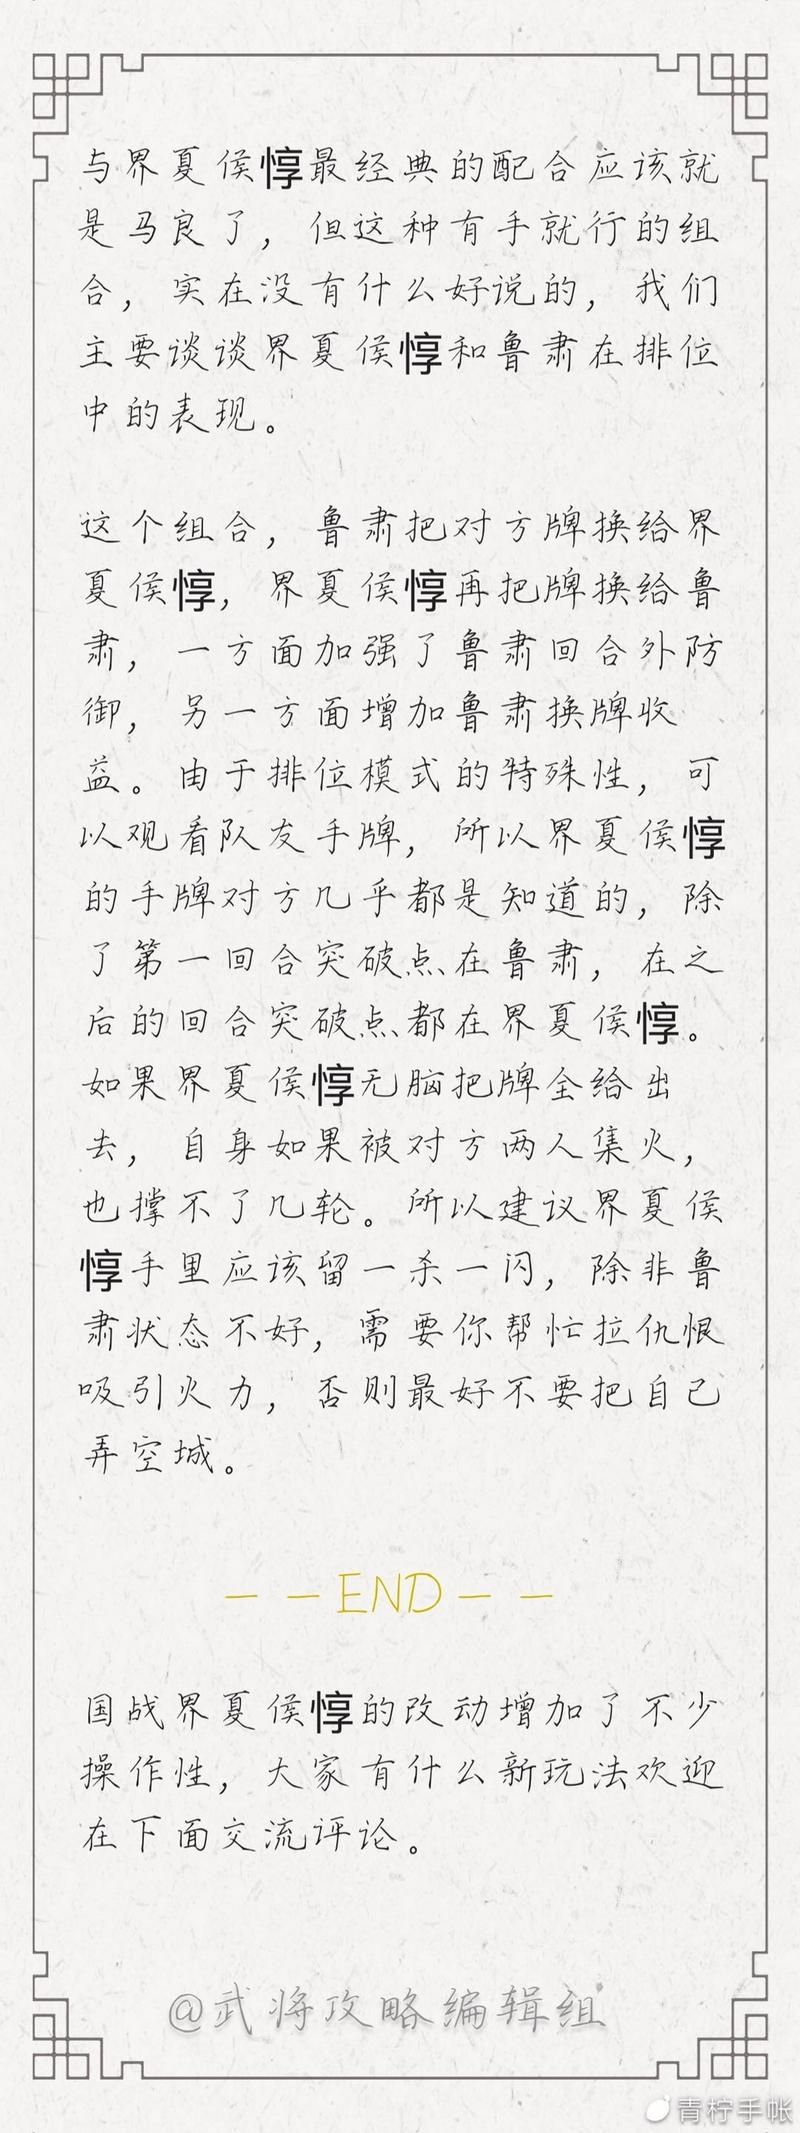 与界夏侯惇最经典的配合应该就
是马良了，但这种有手就行的组
合，实在没有什么好说的，我们
主要谈谈界夏侯惇和鲁肃在排位
中的表现。
这个组合，鲁肃把对方牌换给界
夏侯惇，界夏侯惇再把牌换给鲁
肃，一方面加强了鲁肃回合外防
御，另一方面增加鲁肃换牌收
益。由于排位模式的特殊性，可
以观看队友手牌，所以界夏侯惇
的手牌对方几乎都是知道的，除
了第一回合突破点在鲁肃，在之
后的回合突破点都在界夏侯惇。
如果界夏侯惇无脑把牌全给出
去，自身如果被对方两人集火，
也撑不了几轮。所以建议界夏侯
惇手里应该留一杀一闪，除非鲁
肃状态不好，需要你帮忙拉仇恨
吸引火力，否则最好不要把自己
弄空城。
——END——
国战界夏侯惇的改动增加了不少
操作性，大家有什么新玩法欢迎
在下面交流评论。
@武将攻略编辑组
青柠手帐